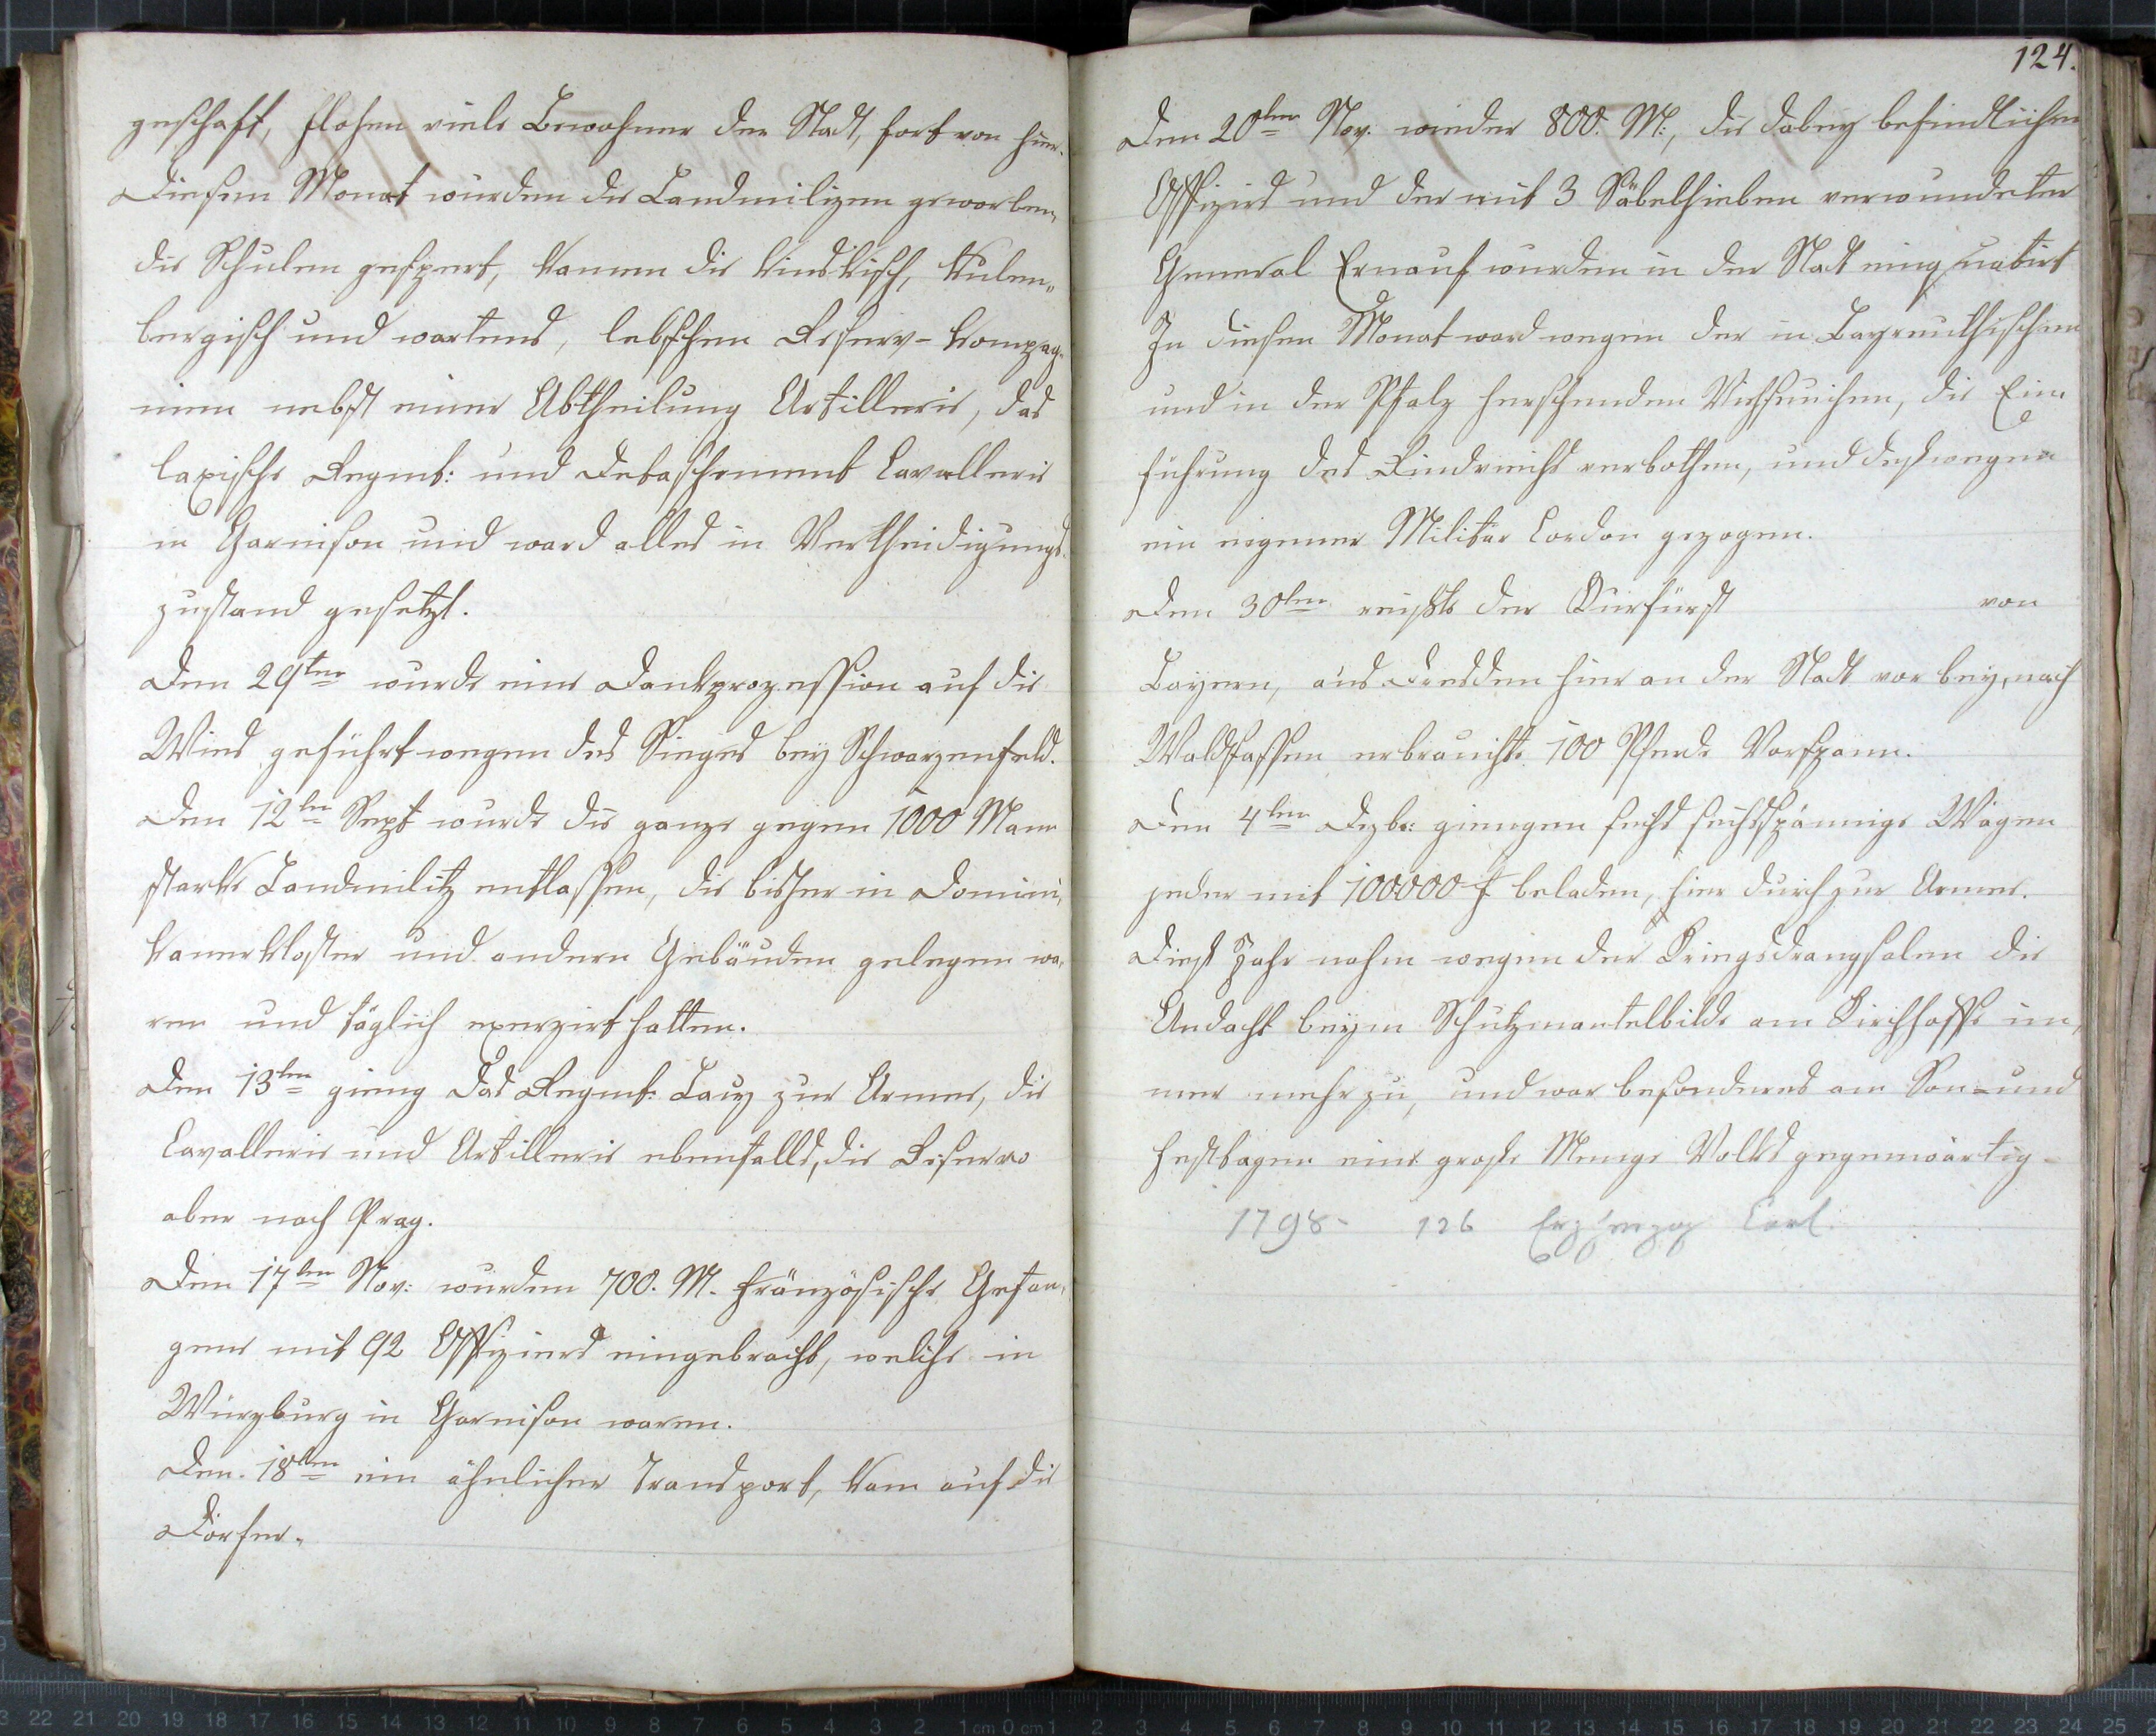 geschaft, flohen viele Bewohner der Stadt, fort von hier.
Diesen Monat wurden die Landmilizen geworben,
die Schulen gespert, kamen die kinskisch, kulen„
bergisch und wartens, lebschen Reserv-kompag„
nien nebst einer Abtheilung Artillerie, das
laxische Regmt: und Detaschement Cavallerie
in Garnison und ward alles in Vertheidigungs„
zustand gesetzt.
Den 29ten wurde eine Dankprozession auf die
Wies geführt wegen des Sieges bey Schwarzenfeld.
Den 12ten Sept wurde die ganze gegen 1000 Mann
starke Landmilitz entlassen, die bisher in Domini„
kanerkloster und andern Gebäuden gelegen wa„
ren und täglich exerzirt hatten.
Den 13ten gieng das Regmt: Lacy zur Armee, die
Cavallerie und Artillerie ebenfalls, die Reserve
aber nach Prag.
Den 17ten Nov: wurden 700. M. französische Gefan„
gene mit 92 Offiziers eingebracht, welche in
Würzburg in Garnison waren.
Den 18ten ein ähnlicher Transport, kam auf die
Dörfer.
124.
Den 20ten Nov: wieder 800. M:, die dabey befindlichen
Offiziers und der mit 3 Säbelhieben verwundeter
General Ernauf wurden in der Stadt einquatirt
In diesen Monat ward wegen der in Bayreuthischen
und in der Pfalz herschenden Viehseuchen, die Ein„
führung des Rindviehs verbothen, und deßwegen
ein eigener Militär Cordon gezogen.
Den 30ten reißte der Kurfürst von
Bayern, aus Dresden hier an der Stadt vor bey, nach
Waldsassen er brauchte 100 Pferde Vorspann.
Den 4ten Dezbr: giengen sechs sechsspännige Wägen
jeder mit 100000 f beladen, hier durch zur Armee.
Dieß Jahr nahm wegen der Kriegsdrangsalen die
Andacht beym Schutzmantelbilde am Kirchhoffe im„
mer mehr zu, und war besonderes am Son- und
Festtagen eine große Menge Volks gegenwärtig.
1798- 126 Erzherzog Carl.